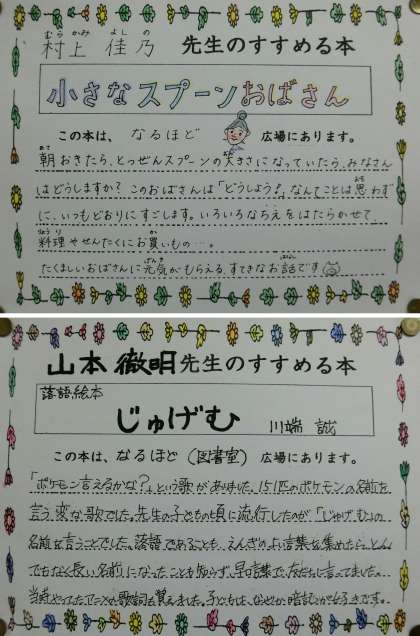 むらかみ よしの
村上 佳乃 先生のすすめる本
小さなスプーンおばさん
この本は、なるほど 広場にあります。
朝おきたら、とつぜんスプーンの大きさになっていたら、みなさん
はどうしますか？このおばさんは「どうしよう！」なんてことは思わず
に、いつもどおりにすごします。いろいろなちえをはたらかせて
料理やせんたくにお買いもの…。
たくましいおばさんに元気がもらえる、すてきなお話です
山本 徹明先生のすすめる本
落語絵本
じゅげむ 川端 誠
この本は、なるほど(図書室)広場にあります。
「ポケモン言えるかな？」という歌がありました。151匹のポケモンの名前を
言う変な歌でした。先生の子どもの頃に流行したのが「じゅげむ」の
名前を言うことでした。落語であることも、えんぎのよい言葉を集めたら、とん
でもなく長い名前になったことも知らず、早口言葉で、友だちに言ってました。
当時やってたアニメの歌詞も覚えました。子どもは、なぜか暗記が好きです。